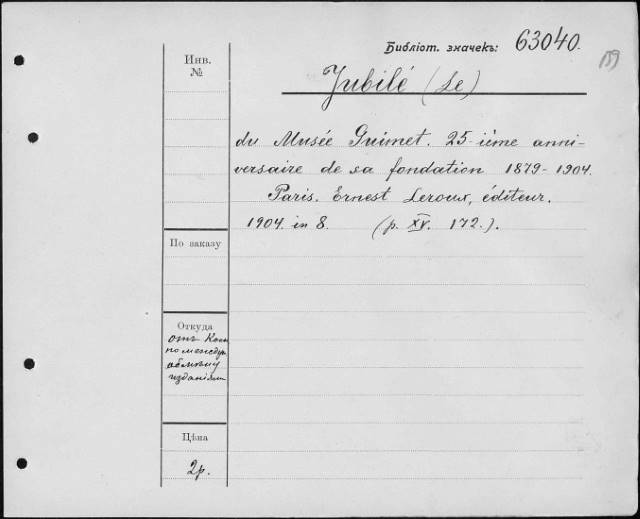 Библіот. значекъ: 63040.
159
Инв.
№
Jubilé (Le)
du Musée Guimet. 25-ième anni-
versaire de sa fondation 1879-1904.
Paris. Ernest Leroux, éditeur.
1904. in 8. (p. XV. 172.).
По заказу
Откуда
отъ Ком
по междун
обмѣну
изданіями
Цѣна
2р.